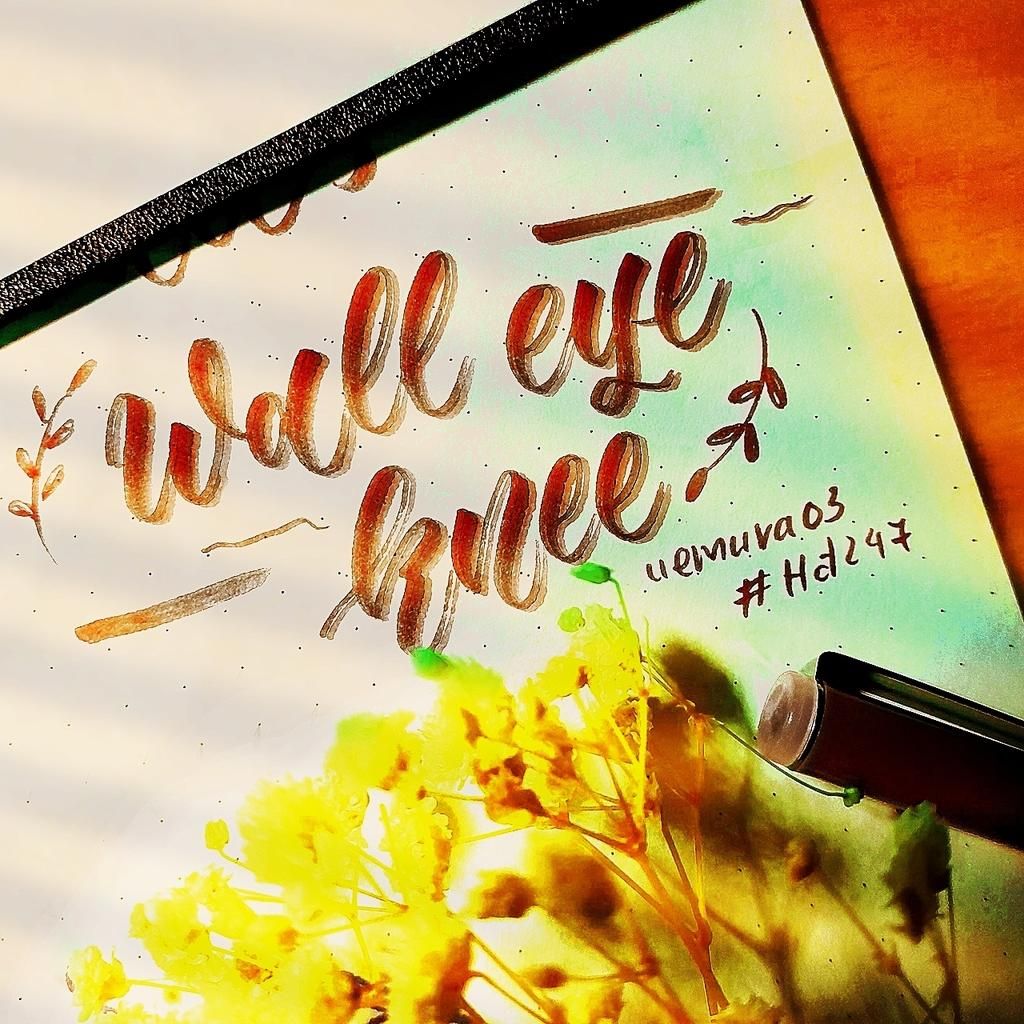 wall eye
knee
uemura03
#Hd247